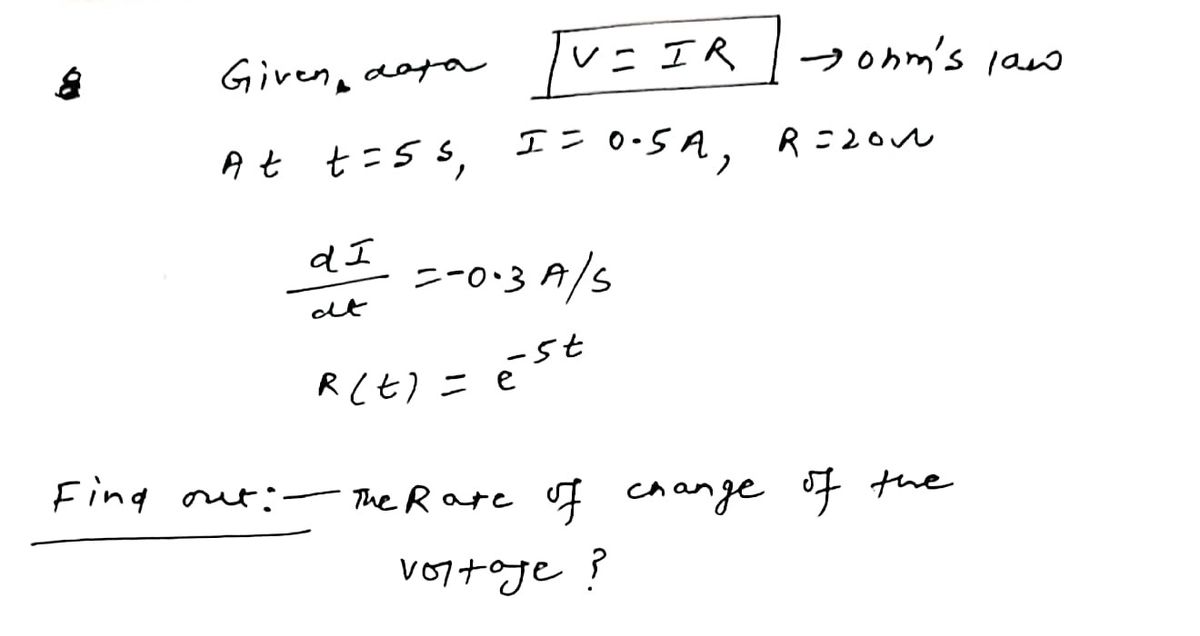 Given data V = IR → ohm's law
At t = 5 s, I = 0.5 A, R = 20 Ω
dI/dt = -0.3 A/s
R(t) = e^-5t
Find out:— The Rate of change of the
voltage ?